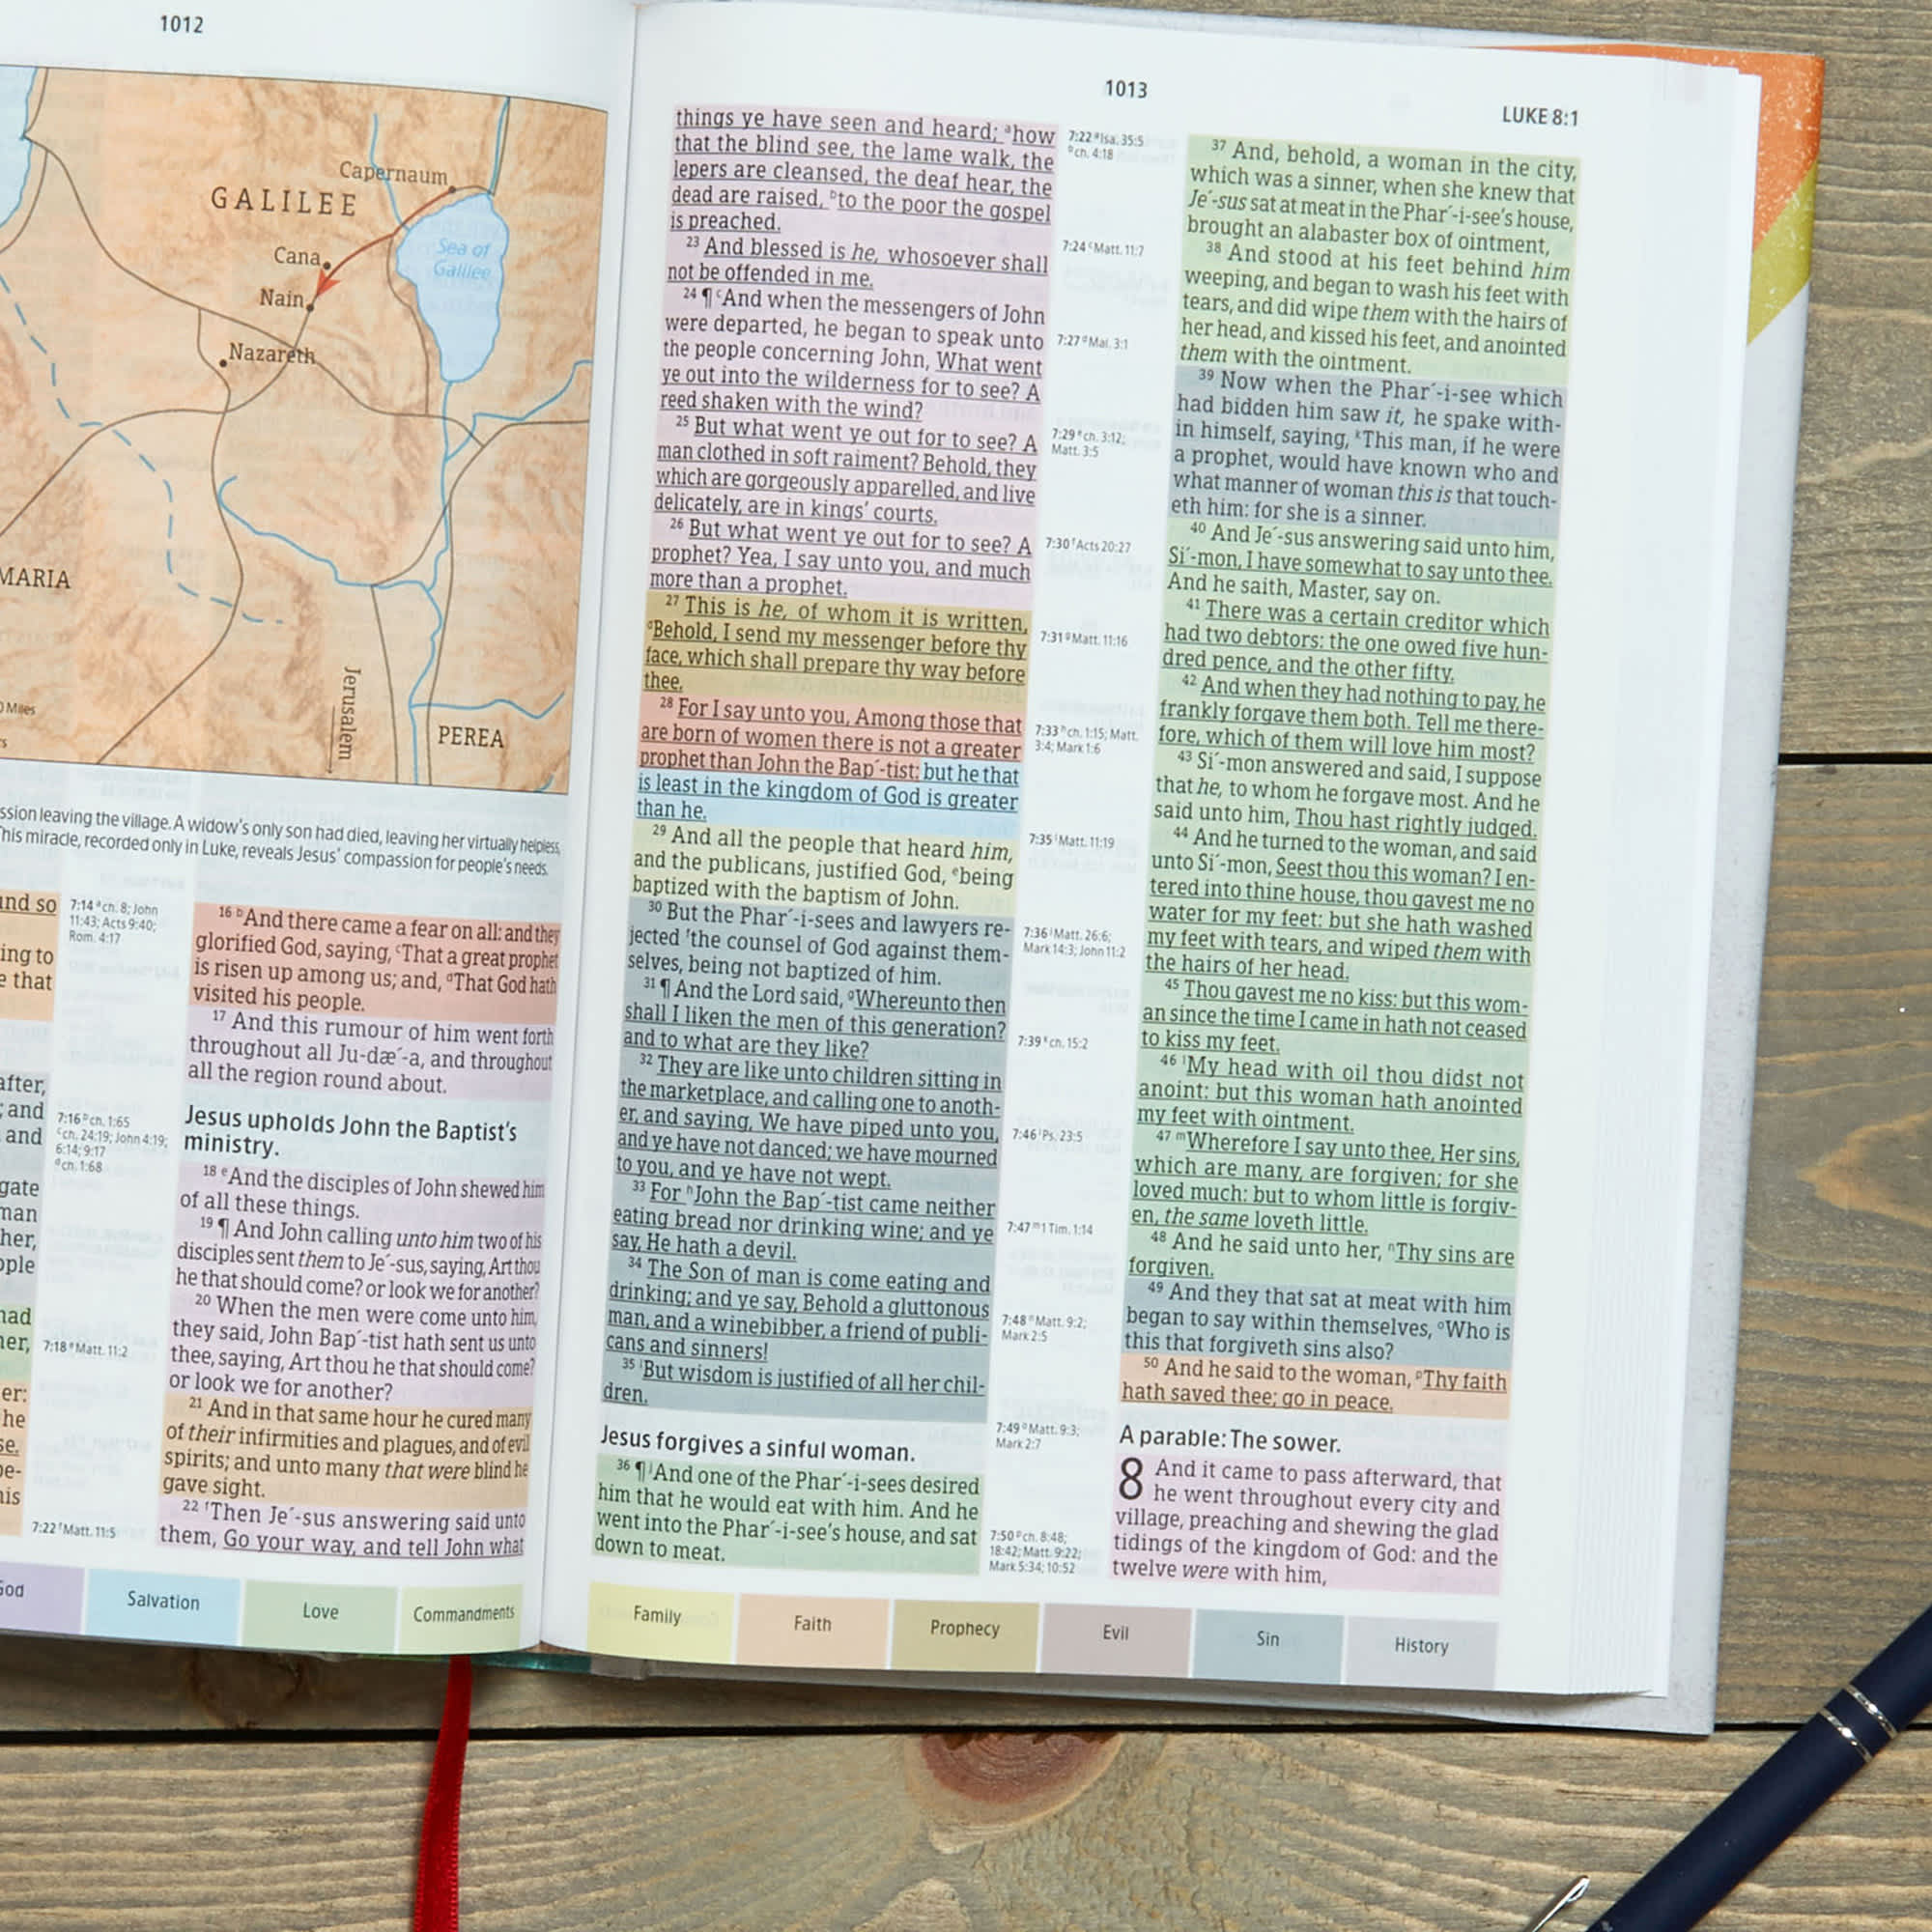 1012
GALILEE
Capernaum
Sea of
Galilee
Cana
Nain
Nazareth
MARIA
Miles
Jerusalem
PEREA
ssion leaving the village. A widow's only son had died, leaving her virtually helpless,
This miracle, recorded only in Luke, reveals Jesus' compassion for people's needs.
and so
ing to
e that
after,
; and
and
gate
man
her,
ople
had
her,
er:
he
se.
be-
his
7:14 a ch. 8; John
11:43; Acts 9:40;
Rom. 4:17
7:16 b ch. 1:65
c ch. 24:19; John 4:19;
6:14; 9:17
d ch. 1:68
7:18 e Matt. 11:2
7:22 f Matt. 11:5
16 b And there came a fear on all: and they
glorified God, saying, c That a great prophet
is risen up among us; and, d That God hath
visited his people.
17 And this rumour of him went forth
throughout all Ju-dæ´-a, and throughout
all the region round about.
Jesus upholds John the Baptist's
ministry.
18 e And the disciples of John shewed him
of all these things.
19 ¶ And John calling unto him two of his
disciples sent them to Je´-sus, saying, Art thou
he that should come? or look we for another?
20 When the men were come unto him,
they said, John Bap´-tist hath sent us unto
thee, saying, Art thou he that should come?
or look we for another?
21 And in that same hour he cured many
of their infirmities and plagues, and of evil
spirits; and unto many that were blind he
gave sight.
22 f Then Je´-sus answering said unto
them, Go your way, and tell John what
God
Salvation
Love
Commandments
1013
LUKE 8:1
things ye have seen and heard; a how
that the blind see, the lame walk, the
lepers are cleansed, the deaf hear, the
dead are raised, b to the poor the gospel
is preached.
23 And blessed is he, whosoever shall
not be offended in me.
24 ¶ c And when the messengers of John
were departed, he began to speak unto
the people concerning John, What went
ye out into the wilderness for to see? A
reed shaken with the wind?
25 But what went ye out for to see? A
man clothed in soft raiment? Behold, they
which are gorgeously apparelled, and live
delicately, are in kings' courts.
26 But what went ye out for to see? A
prophet? Yea, I say unto you, and much
more than a prophet.
27 This is he, of whom it is written,
d Behold, I send my messenger before thy
face, which shall prepare thy way before
thee.
28 For I say unto you, Among those that
are born of women there is not a greater
prophet than John the Bap´-tist: but he that
is least in the kingdom of God is greater
than he.
29 And all the people that heard him,
and the publicans, justified God, e being
baptized with the baptism of John.
30 But the Phar´-i-sees and lawyers re-
jected f the counsel of God against them-
selves, being not baptized of him.
31 ¶ And the Lord said, g Whereunto then
shall I liken the men of this generation?
and to what are they like?
32 They are like unto children sitting in
the marketplace, and calling one to anoth-
er, and saying, We have piped unto you,
and ye have not danced; we have mourned
to you, and ye have not wept.
33 For h John the Bap´-tist came neither
eating bread nor drinking wine; and ye
say, He hath a devil.
34 The Son of man is come eating and
drinking; and ye say, Behold a gluttonous
man, and a winebibber, a friend of publi-
cans and sinners!
35 i But wisdom is justified of all her chil-
dren.
Jesus forgives a sinful woman.
36 ¶ j And one of the Phar´-i-sees desired
him that he would eat with him. And he
went into the Phar´-i-see's house, and sat
down to meat.
7:22 a Isa. 35:5
b ch. 4:18
7:24 c Matt. 11:7
7:27 d Mal. 3:1
7:29 e ch. 3:12;
Matt. 3:5
7:30 f Acts 20:27
7:31 g Matt. 11:16
7:33 h ch. 1:15; Matt.
3:4; Mark 1:6
7:35 i Matt. 11:19
7:36 j Matt. 26:6;
Mark 14:3; John 11:2
7:39 k ch. 15:2
7:46 l Ps. 23:5
7:47 m 1 Tim. 1:14
7:48 n Matt. 9:2;
Mark 2:5
7:49 o Matt. 9:3;
Mark 2:7
7:50 p ch. 8:48;
18:42; Matt. 9:22;
Mark 5:34; 10:52
37 And, behold, a woman in the city,
which was a sinner, when she knew that
Je´-sus sat at meat in the Phar´-i-see's house,
brought an alabaster box of ointment,
38 And stood at his feet behind him
weeping, and began to wash his feet with
tears, and did wipe them with the hairs of
her head, and kissed his feet, and anointed
them with the ointment.
39 Now when the Phar´-i-see which
had bidden him saw it, he spake with-
in himself, saying, k This man, if he were
a prophet, would have known who and
what manner of woman this is that touch-
eth him: for she is a sinner.
40 And Je´-sus answering said unto him,
Si´-mon, I have somewhat to say unto thee.
And he saith, Master, say on.
41 There was a certain creditor which
had two debtors: the one owed five hun-
dred pence, and the other fifty.
42 And when they had nothing to pay, he
frankly forgave them both. Tell me there-
fore, which of them will love him most?
43 Si´-mon answered and said, I suppose
that he, to whom he forgave most. And he
said unto him, Thou hast rightly judged.
44 And he turned to the woman, and said
unto Si´-mon, Seest thou this woman? I en-
tered into thine house, thou gavest me no
water for my feet: but she hath washed
my feet with tears, and wiped them with
the hairs of her head.
45 Thou gavest me no kiss: but this wom-
an since the time I came in hath not ceased
to kiss my feet.
46 l My head with oil thou didst not
anoint: but this woman hath anointed
my feet with ointment.
47 m Wherefore I say unto thee, Her sins,
which are many, are forgiven; for she
loved much: but to whom little is forgiv-
en, the same loveth little.
48 And he said unto her, n Thy sins are
forgiven.
49 And they that sat at meat with him
began to say within themselves, o Who is
this that forgiveth sins also?
50 And he said to the woman, p Thy faith
hath saved thee; go in peace.
A parable: The sower.
8 And it came to pass afterward, that
he went throughout every city and
village, preaching and shewing the glad
tidings of the kingdom of God: and the
twelve were with him,
Family
Faith
Prophecy
Evil
Sin
History